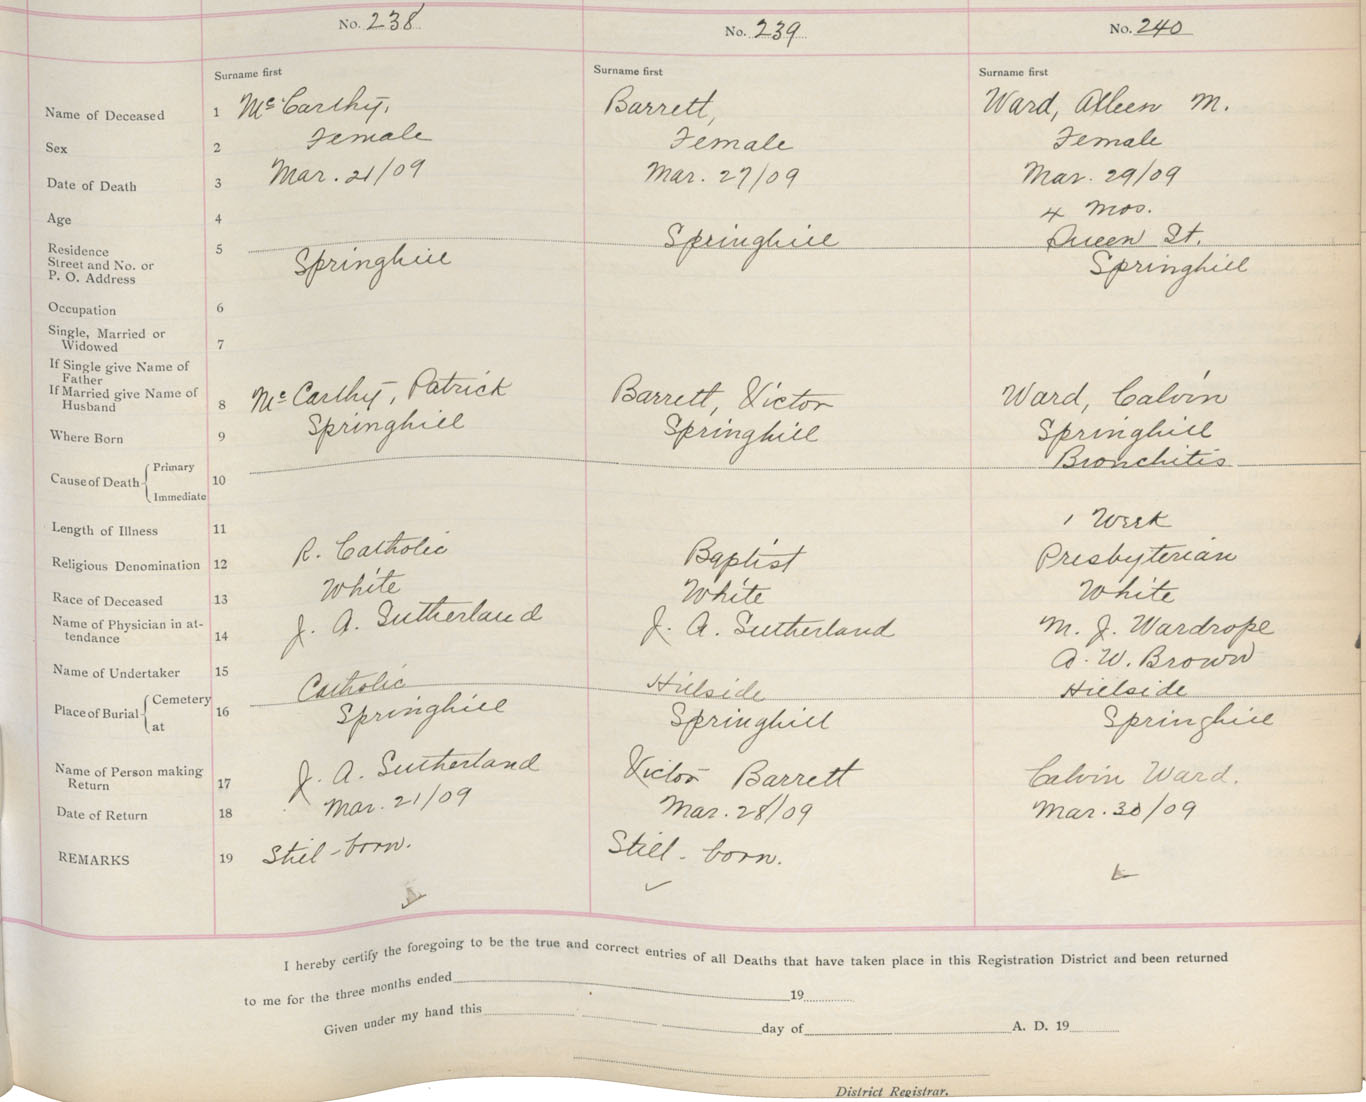 No. 238 No. 239 No. 240
Surname first Surname first Surname first
Name of Deceased 1 McCarthy, Barrett, Ward, Aileen M.
Sex 2 Female Female Female
Date of Death 3 Mar. 21/09 Mar. 27/09 Mar. 29/09
Age 4 4 mos.
Residence 5 Springhill Queen St.
Street and No. or Springhill Springhill
P. O. Address
Occupation 6
Single, Married or
Widowed 7
If Single give Name of
Father
If Married give Name of
Husband 8 McCarthy, Patrick Barrett, Victor Ward, Calvin
Where Born 9 Springhill Springhill Springhill
Cause of Death Primary Bronchitis
10
Immediate
Length of Illness 11 1 Week
Religious Denomination 12 R. Catholic Baptist Presbyterian
Race of Deceased 13 White White White
Name of Physician in at-
tendance 14 J. A. Sutherland J. A. Sutherland M. J. Wardrope
Name of Undertaker 15 A. W. Brown
Place of Burial Cemetery Catholic Hillside Hillside
at 16 Springhill Springhill Springhill
Name of Person making
Return 17 J. A. Sutherland Victor Barrett Calvin Ward.
Date of Return 18 Mar. 21/09 Mar. 28/09 Mar. 30/09
REMARKS 19 Still-born. Still-born.
I hereby certify the foregoing to be the true and correct entries of all Deaths that have taken place in this Registration District and been returned
to me for the three months ended 19
Given under my hand this day of A. D. 19
District Registrar.